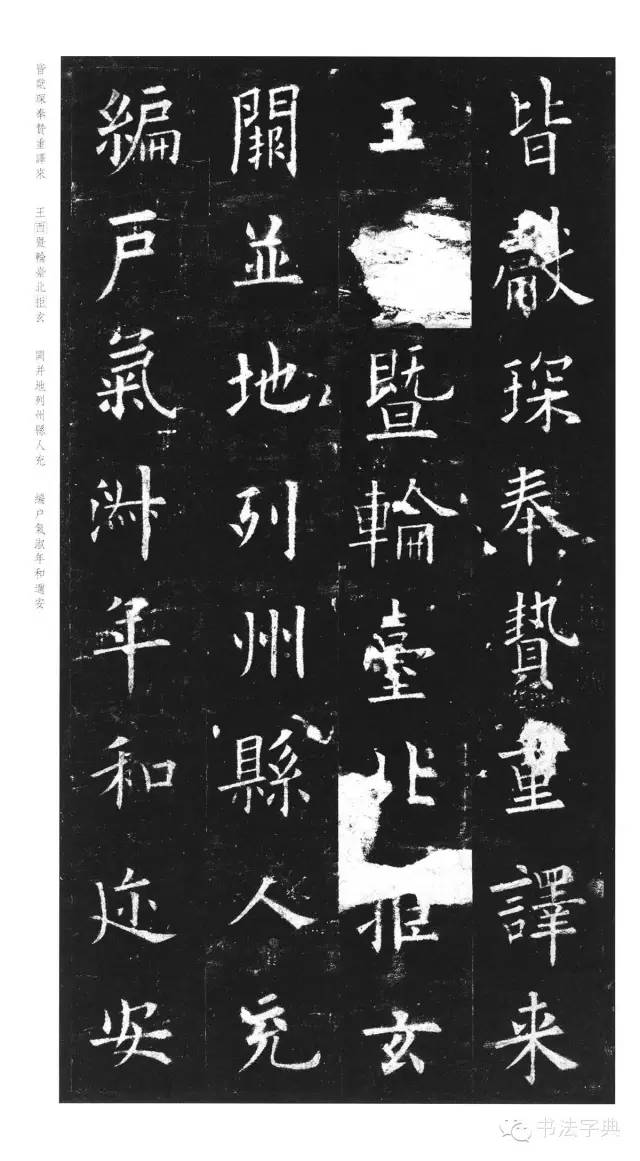 皆献琛奉贄重譯来
王暨輪臺北拒玄
闕並地列州縣人充
編戸氣淑年和迩安
皆献琛奉贄重譯來 王西暨輪臺北拒玄 闕并地列州縣人充 編户氣淑年和邇安
书法字典